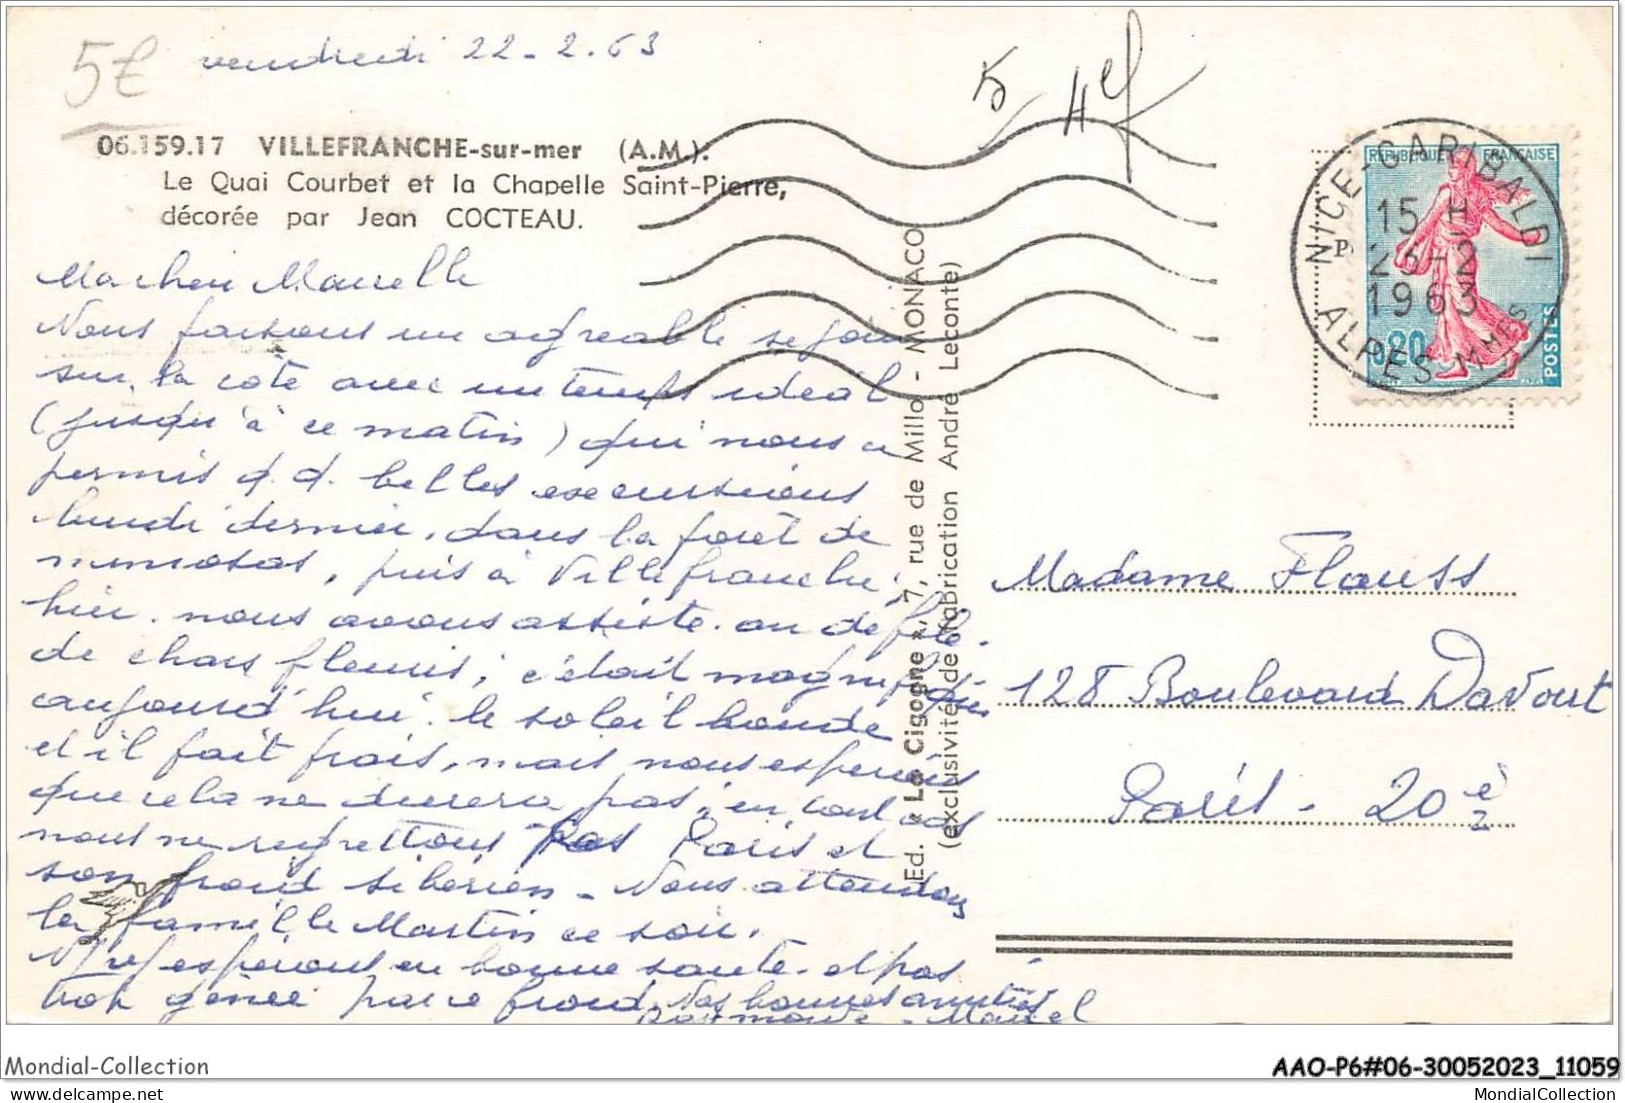 5€
vendredi 22-2.63
06.159.17 VILLEFRANCHE-sur-mer (A.M.).
Le Quai Courbet et la Chapelle Saint-Pierre,
décorée par Jean COCTEAU.
Ma chère Marcelle
Nous faisons un agreable sejour
sur la côte avec un temps ideal
(jusqu'à ce matin) qui nous a
permis d. d. belles excursions
lundi dernier, dans la foret de
mimosas, puis à Villefranche,
hier. nous avons assisté. au défilé.
de chars fleuris, c'était magnifique
aujourd'hui. le soleil boude
et il fait frais, mais nous esperons
que cela ne durera pas, en tout cas
nous ne regrettons pas Paris et
son froid siberien - Nous attendons
la famille Martin ce soir.
espérons en bonne santé. et pas
trop gênée par ce froid. Nos bonnes amitiés
Raymonde - Marcel
Ed. « La Cigogne », 7, rue de Millo - MONACO
(exclusivité de fabrication André Leconte)
REPUBLIQUE FRANÇAISE
0,20
POSTES
NICE-GARIBALDI
15 H
23-2
1963
ALPES-MMES
Madame Flauss
128 Boulevard Davout
Paris - 20è
Mondial-Collection
AAO-P6#06-30052023_11059
mondialcollection.net
MondialCollection